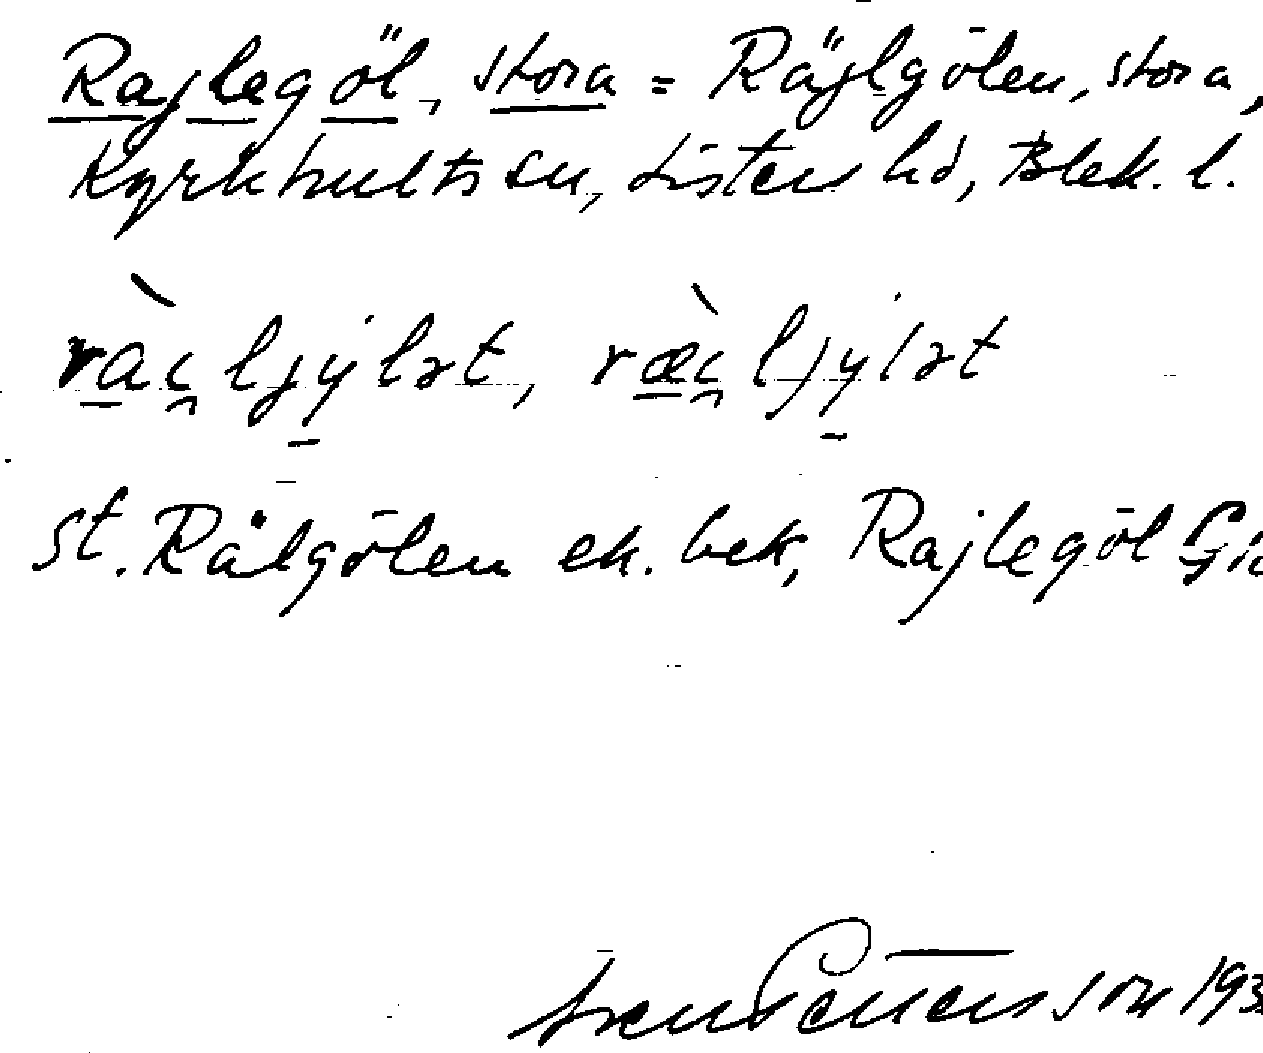 Rajlegöl, stora = Räjlgölen, stora,
Kyrkhults sn, Listers hd, Blek. l.
ràɩ̯ljylət, ræ̀ɩ̯ljylət
St. Rälgölen ek. bek, Rajlegöl
Pettersson 193